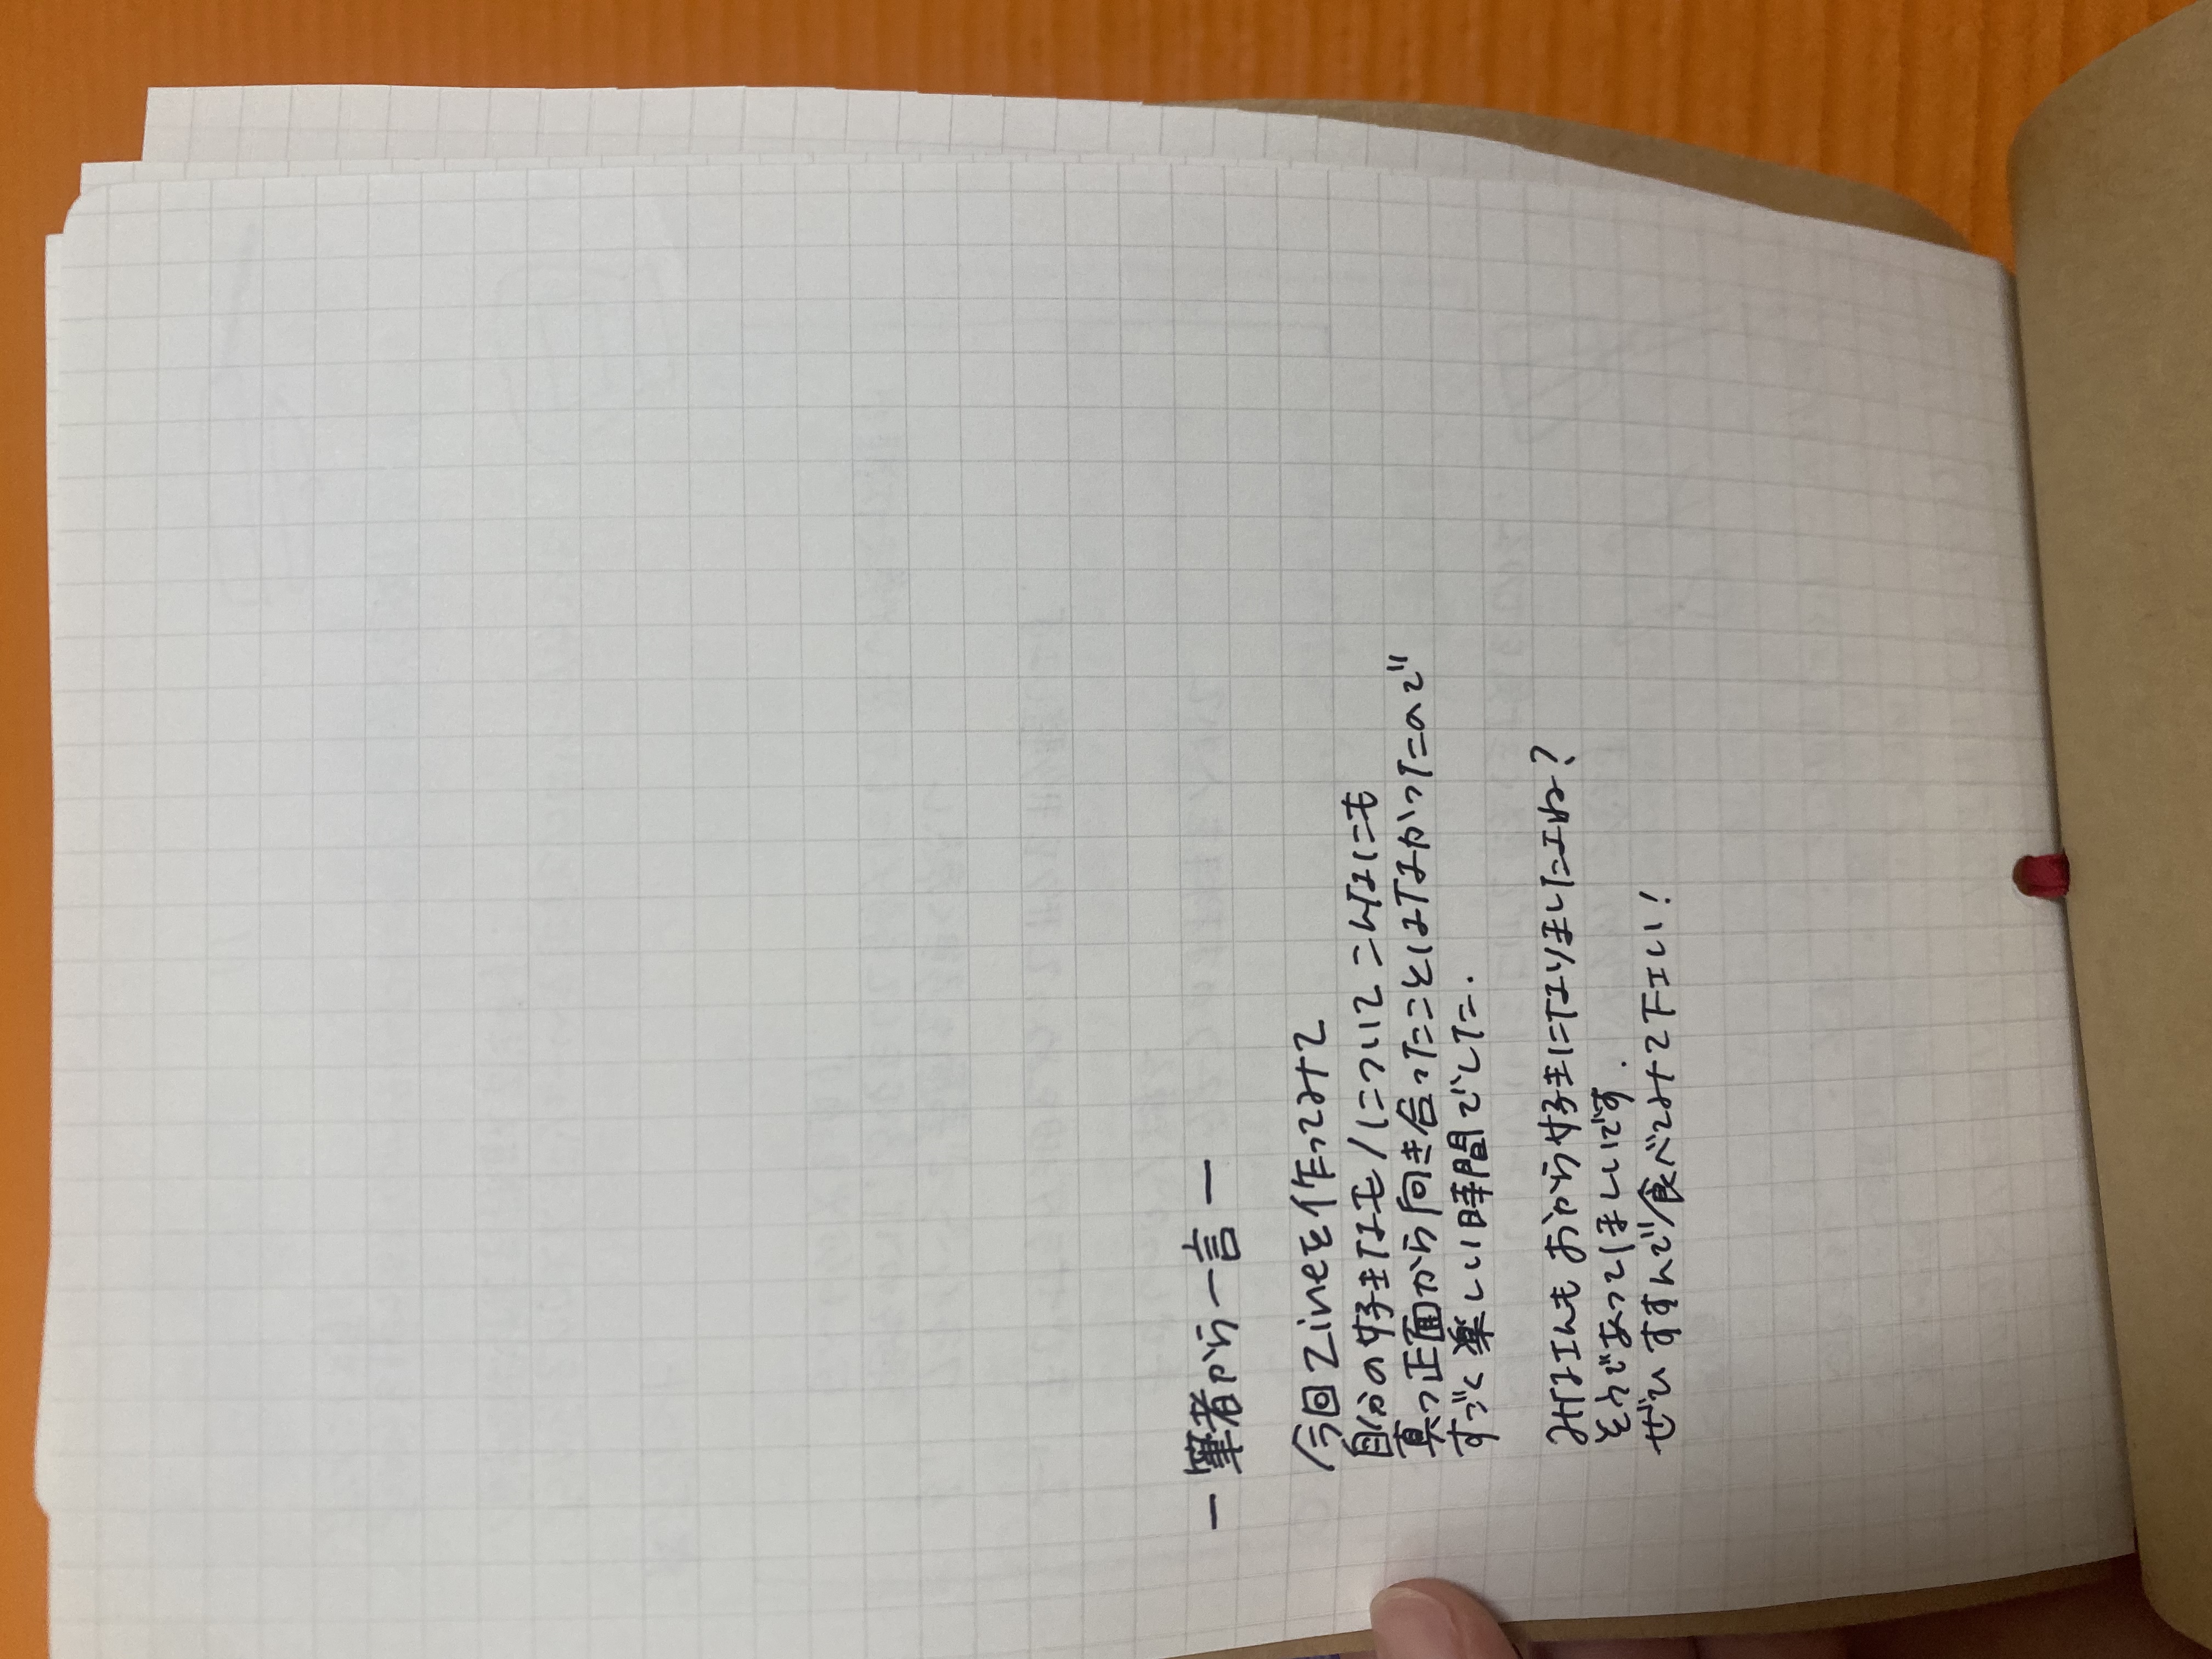 ー筆者から一言ー
今回Zineを作ってみて
自分の好きなモノについてこんなにも
真っ正面から向き合ったことはなかったので
すごく楽しい時間でした.
みなさんもおから好きになりましたよね?
そうであってほしいです.
ぜひすすんで食べてみて下さい!